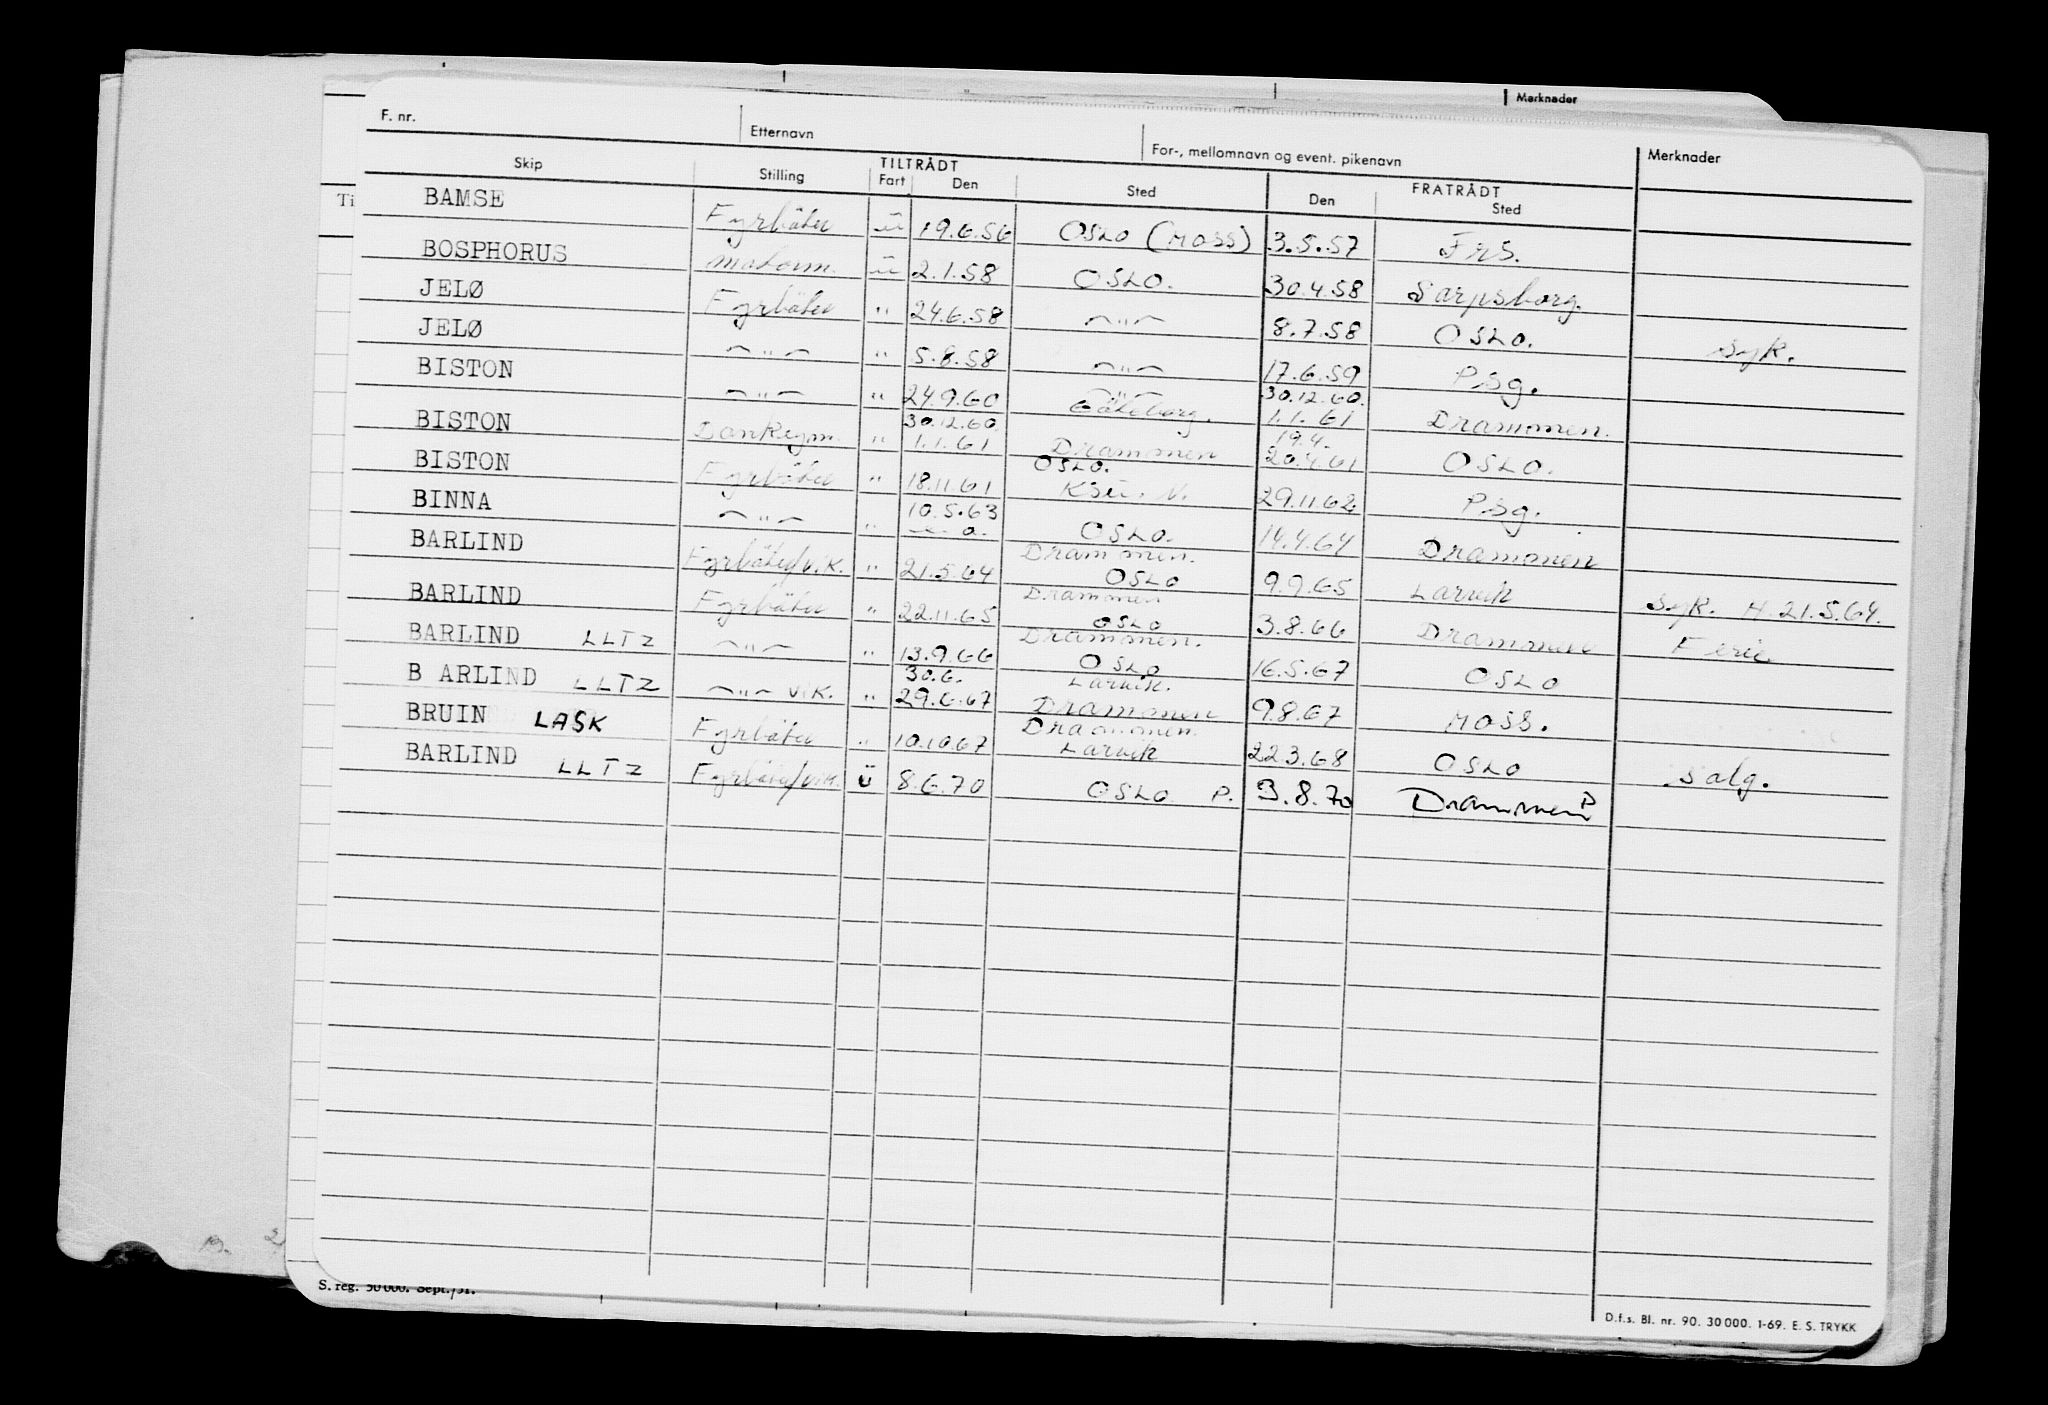 Merknader
F. nr. Etternavn For-, mellomnavn og event. pikenavn Merknader
Skip Stilling TILTRÅDT Fart Den Sted FRATRÅDT Den Sted
Ti
BAMSE Fyrbøter ü 19.6.56 OSLO (MOSS) 3.5.57 Frs.
BOSPHORUS motorm. ü 2.1.58 OSLO. 30.4.58 Sarpsborg.
JELØ Fyrbøter " 24.6.58 — " — 8.7.58 OSLO. syk.
JELØ — " — " 5.8.58 — " — 17.6.59 Psg.
BISTON — " — " 24.9.60 — " — Göteborg. 30.12.60. 1.1.61 Drammen.
BISTON Donkeym. " 30.12.60. 1.1.61 Drammen 19.4. 20.4.61 OSLO.
BISTON Fyrbøter " 18.11.61 OSLO. Ksu. N. 29.11.62. Psg.
BINNA — " — " 10.5.63 OSLO. 14.4.64 Drammen
BARLIND Fyrbøter/vik. " 21.5.64 Drammen. OSLO 9.9.65 Larvik syk. H. 21.5.64.
BARLIND Fyrbøter " 22.11.65 Drammen OSLO 3.8.66 Drammen Ferie
BARLIND LLTZ — " — " 13.9.66 Drammen. OSLO 16.5.67 OSLO
B ARLIND LLTZ — " — vik. " 30.6. 29.6.67 Larvik. Drammen 9.8.67 MOSS.
BRUIN LASK Fyrbøter " 10.10.67 Drammen. Larvik 22.3.68 OSLO salg.
BARLIND LLTZ Fyrbøter/vik. ü 8.6.70 OSLO P. 3.8.70 Drammen P
S. reg. 50 000. Sept./51.
D.f.s. Bl. nr. 90. 30 000. 1-69. E. S. TRYKK